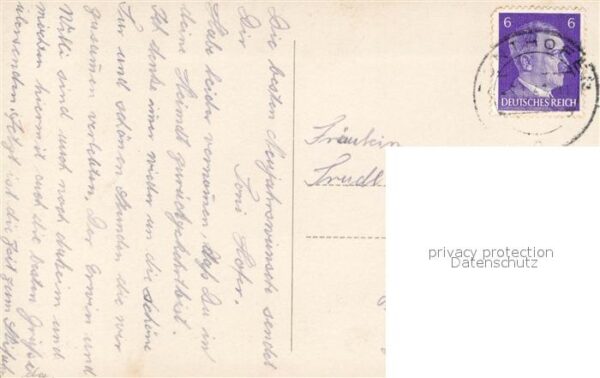 Die besten Neujahrswünsche sendet
Dir
Toni Hofer.
Habe leider vernommen, daß Du in
deine Heimat zurückgekehrt bist.
Ich denke immer wieder an die schöne
Tur und schönen Stunden die wir
zusammen verlebten. Der Erwin und
Willi sind auch noch daheim und
möchten hiermit auch die besten Grüße
übersenden. Jetzt ist die Zeit zum
6 6
DEUTSCHES REICH
Fräulein
Trudl
privacy protection
Datenschutz